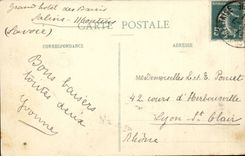 Grand hotel des Bains
Salins-Moutiers
(Savoie)
CARTE POSTALE
CORRESPONDANCE
Bons baisers
toutes deux
Yvonne
Mesdemoiselles et E. Poncet
42 cours d'Herbouville
Lyon-St Clair
Rhône